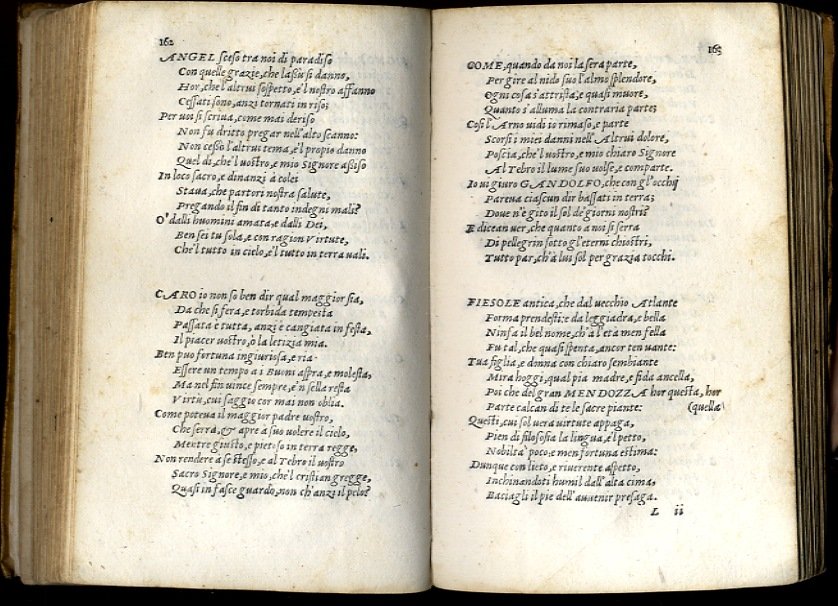 162
ANGEL sceso tra noi di paradiso
Con quelle grazie, che lassù si danno,
Hor, che l'altrui sospetto, e'l nostro affanno
Cessati sono, anzi tornati in riso;
Per voi si scriva, come mai deriso
Non fu dritto pregar nell'alto scanno:
Non cessò l'altrui tema, e'l propio danno
Quel dì, che'l vostro, e mio Signore assiso
In loco sacro, e dinanzi à colei
Stava, che partori nostra salute,
Pregando il fin di tanto indegni mali?
O' dalli huomini amata, e dalli Dei,
Ben sei tu sola, e con ragion Virtute,
Che'l tutto in cielo, e'l tutto in terra vali.
CARO io non so ben dir qual maggior sia,
Da che si fera, e torbida tempesta
Passata e tutta, anzi e cangiata in festa,
Il piacer vostro, ò la letizia mia.
Ben puo fortuna ingiuriosa, e ria
Essere un tempo a i Buoni aspra, e molesta,
Ma nel fin vince sempre, e'n sella resta
Virtù, cui saggio cor mai non oblia.
Come poteva il maggior padre vostro,
Che serra, & apre à suo volere il cielo,
Mentre giusto, e pietoso in terra regge,
Non rendere a se stesso, e al Tebro il vostro
Sacro Signore, e mio, che'l cristian gregge,
Quasi in fasce guardò, non ch'anzi il pelo?
163
COME, quando da noi la sera parte,
Per gire al nido suo l'almo splendore,
Ogni cosa s'attrista, e quasi muore,
Quanto s'alluma la contraria parte;
Così l'Arno vidi io rimaso, e parte
Scorsi i miei danni nell'Altrui dolore,
Poscia, che'l vostro, e mio chiaro Signore
Al Tebro il lume suo volse, e comparte.
Io vi giuro GANDOLFO, che con gl'occhij
Pareva ciascun dir bassati in terra;
Dove n'è gito il sol de giorni nostri?
E dicean ver, che quanto a noi si serra
Di pellegrin sotto gl'eterni chiostri,
Tutto par, ch'à lui sol per grazia tocchi.
FIESOLE antica, che dal vecchio Atlante
Forma prendesti: e da leggiadra, e bella
Ninfa il bel nome, ch'à l'età men fella
Fu tal, che quasi spenta, ancor ten vante:
Tua figlia, e donna con chiaro sembiante
Mira hoggi, qual pia madre, e fida ancella,
Poi che del gran MENDOZZA hor questa, hor
Parte calcan di te le sacre piante: (quella
Questi, cui sol vera virtute appaga,
Pien di filosofia la lingua, e'l petto,
Nobiltà poco, e men fortuna estima:
Dunque con lieto, e riverente aspetto,
Inchinandoti humil dall'alta cima,
Baciagli il pie dell'avvenir presaga.
L ii